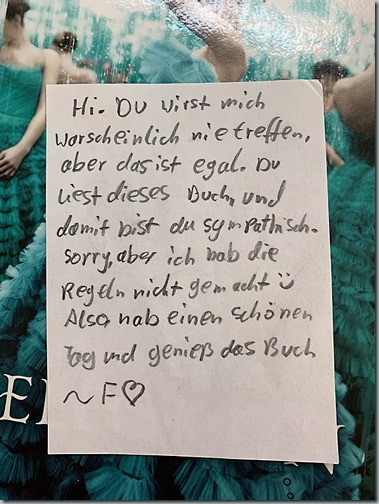 Hi. Du wirst mich
worscheinlich nie treffen,
aber das ist egal. Du
liest dieses Buch, und
damit bist du sympathisch.
Sorry, aber ich hab die
Regeln nicht gemacht ü
Also, hab einen schönen
Tag und genieß das Buch
~ F♡